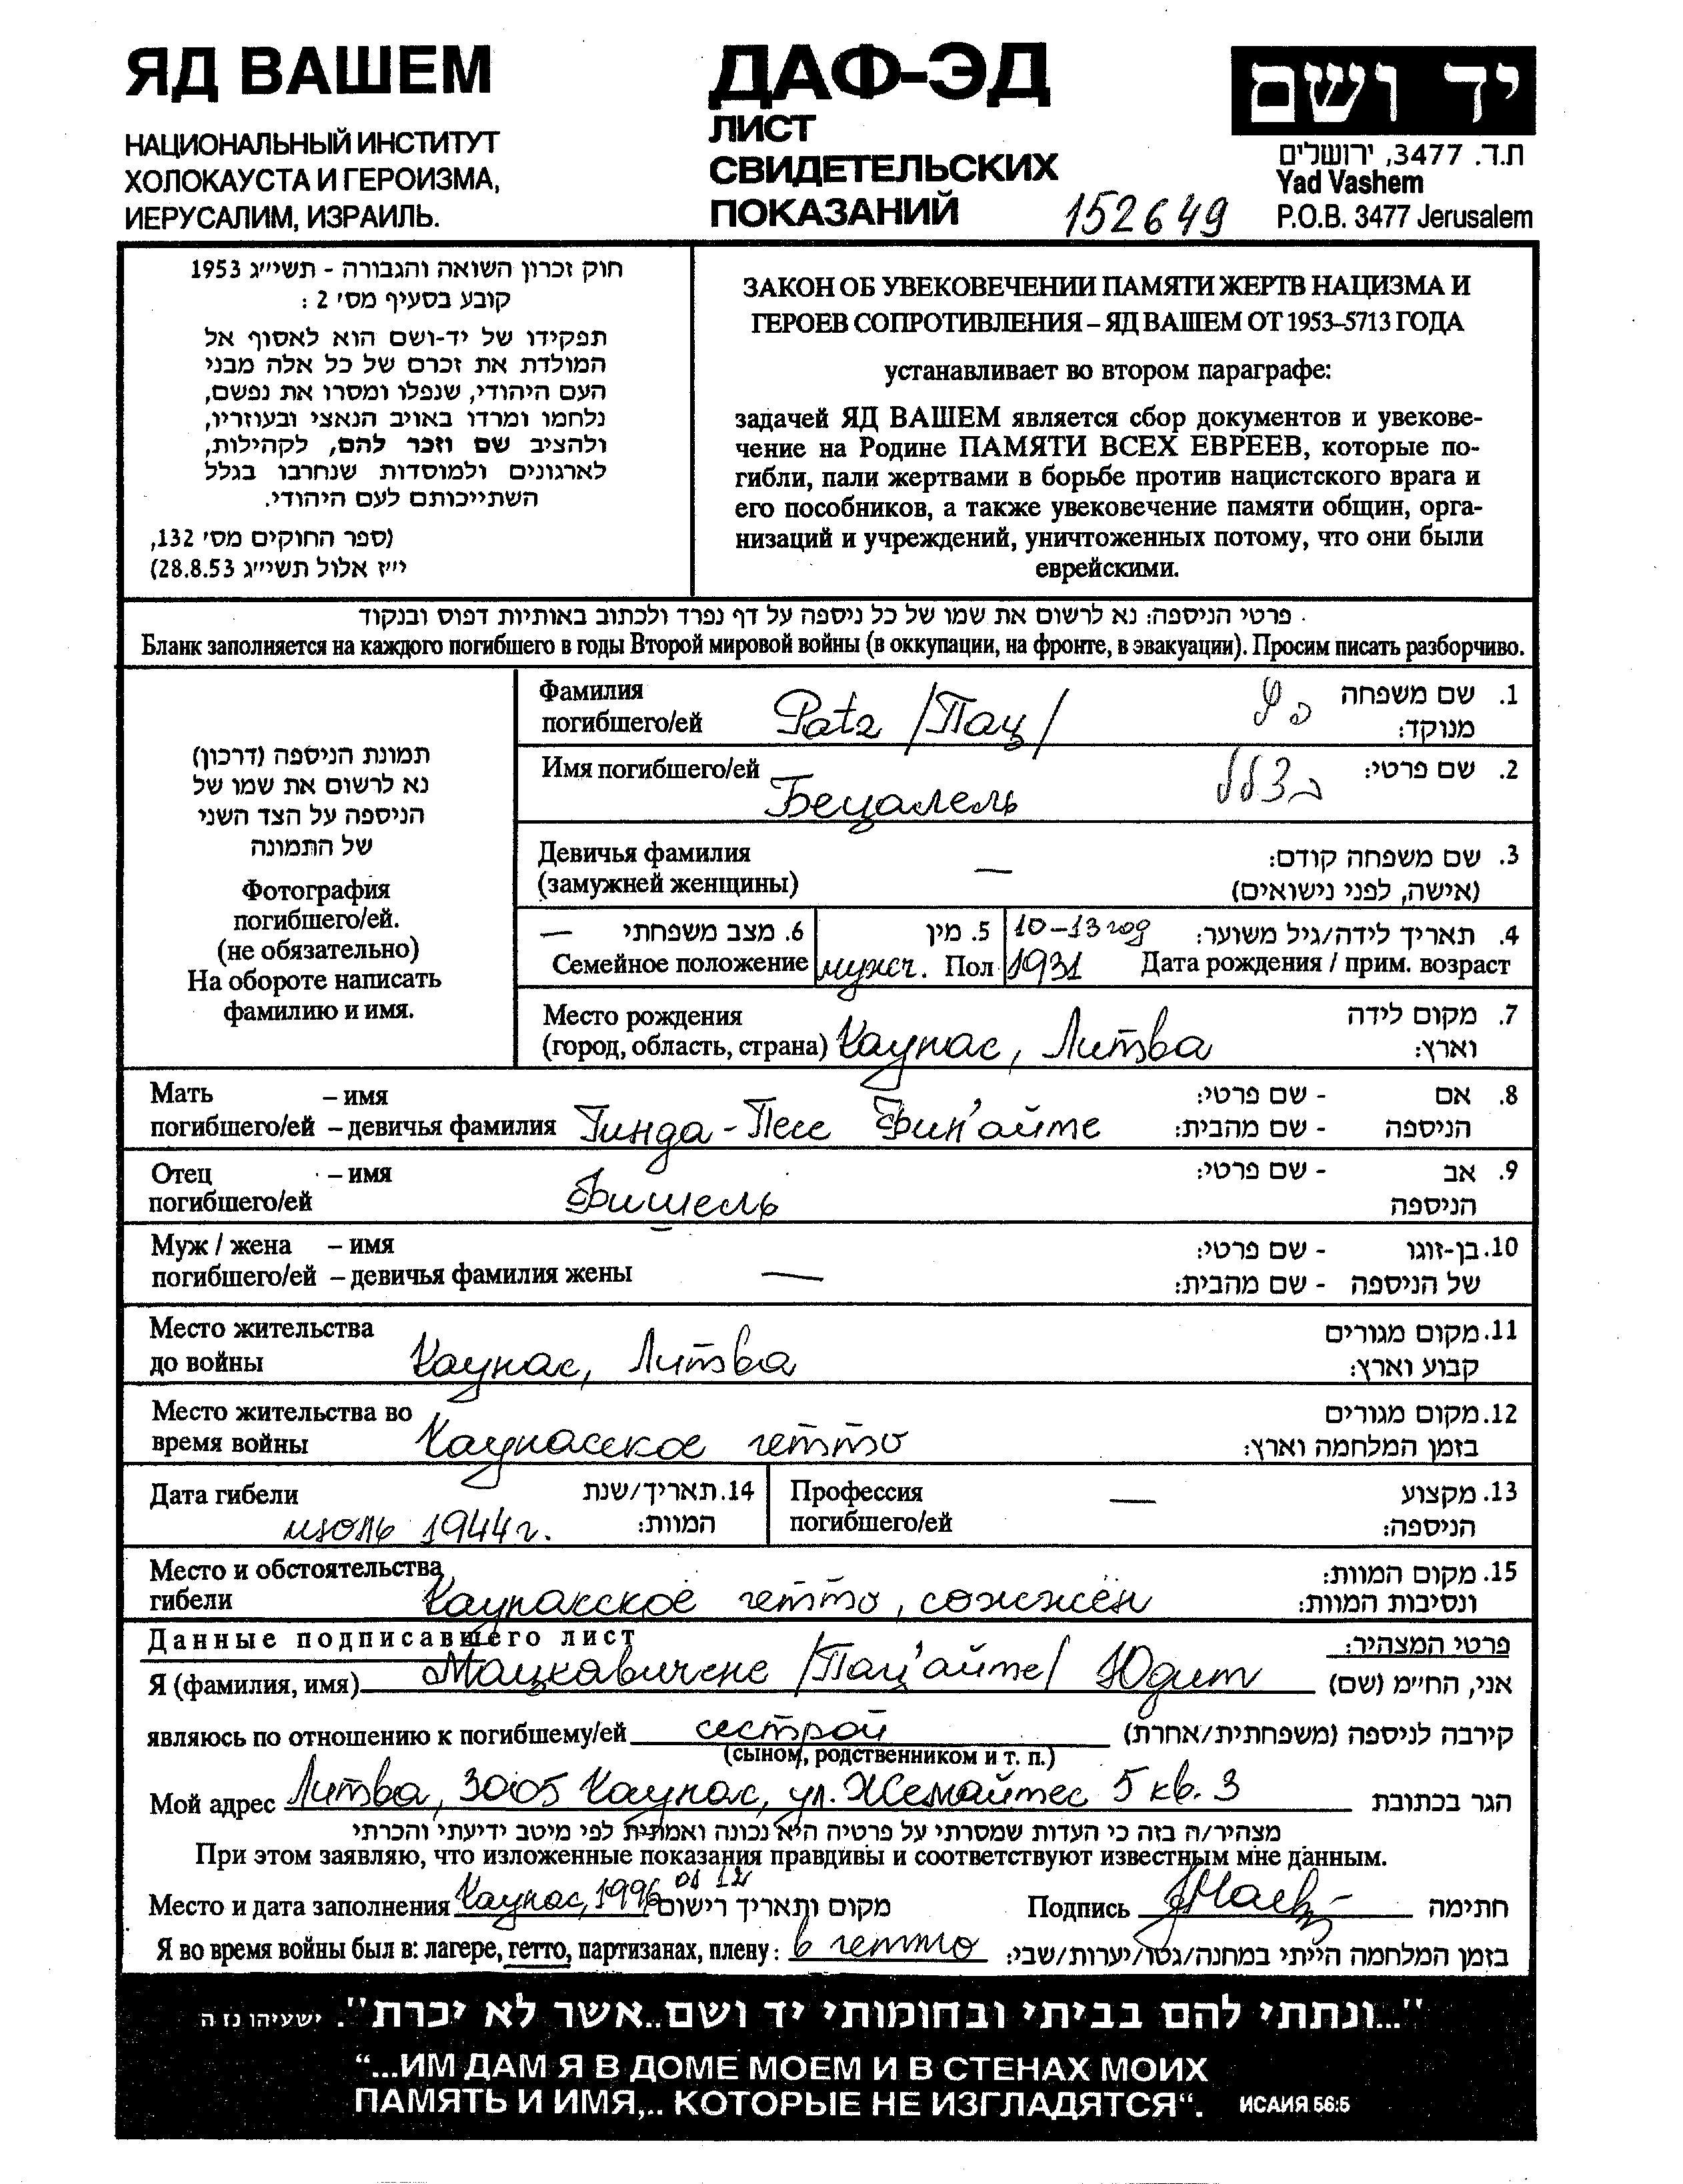 ЯД ВАШЕМ
НАЦИОНАЛЬНЫЙ ИНСТИТУТ
ХОЛОКАУСТА И ГЕРОИЗМА,
ИЕРУСАЛИМ, ИЗРАИЛЬ.
ДАФ-ЭД
ЛИСТ
СВИДЕТЕЛЬСКИХ
ПОКАЗАНИЙ
152649
יד ושם
ת.ד. 3477, ירושלים
Yad Vashem
P.O.B. 3477 Jerusalem
חוק זכרון השואה והגבורה - תשי״ג 1953
קובע בסעיף מס׳ 2 :
תפקידו של יד-ושם הוא לאסוף אל
המולדת את זכרם של כל אלה מבני
העם היהודי, שנפלו ומסרו את נפשם,
נלחמו ומרדו באויב הנאצי ובעוזריו,
ולהציב שם וזכר להם, לקהילות,
לארגונים ולמוסדות שנחרבו בגלל
השתייכותם לעם היהודי.
(ספר החוקים מס׳ 132,
י״ז אלול תשי״ג 28.8.53)
ЗАКОН ОБ УВЕКОВЕЧЕНИИ ПАМЯТИ ЖЕРТВ НАЦИЗМА И
ГЕРОЕВ СОПРОТИВЛЕНИЯ – ЯД ВАШЕМ ОТ 1953–5713 ГОДА
устанавливает во втором параграфе:
задачей ЯД ВАШЕМ является сбор документов и увекове-
чение на Родине ПАМЯТИ ВСЕХ ЕВРЕЕВ, которые по-
гибли, пали жертвами в борьбе против нацистского врага и
его пособников, а также увековечение памяти общин, орга-
низаций и учреждений, уничтоженных потому, что они были
еврейскими.
פרטי הניספה: נא לרשום את שמו של כל ניספה על דף נפרד ולכתוב באותיות דפוס ובנקוד
Бланк заполняется на каждого погибшего в годы Второй мировой войны (в оккупации, на фронте, в эвакуации). Просим писать разборчиво.
תמונת הניספה (דרכון)
נא לרשום את שמו של
הניספה על הצד השני
של התמונה
Фотография
погибшего/ей.
(не обязательно)
На обороте написать
фамилию и имя.
Фамилия
погибшего/ей Patz /Пац/ פץ
1. שם משפחה
מנוקד:
Имя погибшего/ей Бецалель בצלל 2. שם פרטי:
Девичья фамилия
(замужней женщины) —
3. שם משפחה קודם:
(אישה, לפני נישואים)
— 6. מצב משפחתי
Семейное положение
5. מין
мужч. Пол
10-13 год 4. תאריך לידה/גיל משוער:
1931 Дата рождения / прим. возраст
Место рождения
(город, область, страна) Каунас, Литва
7. מקום לידה
וארץ:
Мать – имя
погибшего/ей – девичья фамилия Гинда-Песе Фин'айте
8. אם - שם פרטי:
הניספה - שם מהבית:
Отец – имя
погибшего/ей Фишель
9. אב - שם פרטי:
הניספה
Муж / жена – имя
погибшего/ей – девичья фамилия жены —
10. בן-זוגו - שם פרטי:
של הניספה - שם מהבית:
Место жительства
до войны Каунас, Литва
11. מקום מגורים
קבוע וארץ:
Место жительства во
время войны Каунасское гетто
12. מקום מגורים
בזמן המלחמה וארץ:
Дата гибели
июль 1944г.
14. תאריך/שנת
המוות:
Профессия
погибшего/ей —
13. מקצוע
הניספה:
Место и обстоятельства
гибели Каунасское гетто, сожжён
15. מקום המוות:
ונסיבות המוות:
Данные подписавшего лист פרטי המצהיר:
Я (фамилия, имя) Мацкавичене /Пац'айте/ Юдит אני, הח״מ (שם)
являюсь по отношению к погибшему/ей сестрой קירבה לניספה (משפחתית/אחרת)
(сыном, родственником и т. п.)
Мой адрес Литва, 3005 Каунас, ул. Жемайтес 5 кв. 3 הגר בכתובת
מצהיר/ה בזה כי העדות שמסרתי על פרטיה היא נכונה ואמתית לפי מיטב ידיעתי והכרתי
При этом заявляю, что изложенные показания правдивы и соответствуют известным мне данным.
Место и дата заполнения Каунас, 1996 01 12 מקום ותאריך רישום Подпись חתימה
Я во время войны был в: лагере, гетто, партизанах, плену: в гетто בזמן המלחמה הייתי במחנה/גטו/יערות/שבי:
"...ונתתי להם בביתי ובחומותי יד ושם..אשר לא יכרת". ישעיהו נז ה
“...ИМ ДАМ Я В ДОМЕ МОЕМ И В СТЕНАХ МОИХ
ПАМЯТЬ И ИМЯ,.. КОТОРЫЕ НЕ ИЗГЛАДЯТСЯ“. ИСАИЯ 56:5